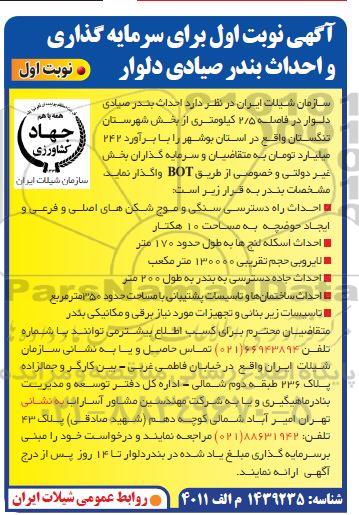 آگهی نوبت اول برای سرمایه گذاری
و احداث بندر صیادی دلوار
نوبت اول
همه با هم
جهاد
کشاورزی
سازمان شیلات ایران
سازمان شیلات ایران در نظر دارد احداث بندر صیادی
دلوار در فاصله ۲/۵ کیلومتری از بخش شهرستان
تنگستان واقع در استان بوشهر را با برآورد ۲۴۲
میلیارد تومان به متقاضیان و سرمایه گذاران بخش
غیر دولتی و خصوصی از طریق BOT واگذار نماید.
مشخصات بندر به قرار زیر است:
احداث راه دسترسی سنگی و موج شکن های اصلی و فرعی و
ایجاد حوضچه به مساحت ۱۰ هکتار
احداث اسکله لنج ها به طول حدود ۱۷۰ متر
لایروبی حجم تقریبی ۱۳۰۰۰۰ متر مکعب
احداث جاده دسترسی به بندر به طول ۲۰۰ متر
احداث ساختمان‌ها و تاسیسات پشتیبانی با مساحت حدود ۳۵۰مترمربع
تاسیسات زیر بنائی و تجهیزات مورد نیاز برقی و مکانیکی بندر
متقاضیان محترم برای کسب اطلاع بیشتر می توانند با شماره
تلفن: ۶۶۹۴۳۸۹۴(۰۲۱) تماس حاصل و یا به نشانی سازمان
شیلات ایران واقع در خیابان فاطمی غربی - بین کارگر و جمالزاده
پلاک ۲۳۶ طبقه دوم شمالی - اداره کل دفتر توسعه و مدیریت
بنادر ماهیگیری و یا به شرکت مهندسین مشاور آساراب به نشانی
تهران امیر آباد شمالی کوچه دهم (شهید صادقی) پلاک ۴۳
تلفن: ۸۸۶۳۱۹۴۲(۰۲۱) مراجعه نمایند و درخواست خود را مبنی
بر سرمایه گذاری مبلغ یاد شده در بندر دلوار تا ۱۴ روز پس از درج
آگهی ارائه نمایند.
شناسه: ۱۴۳۹۲۳۵ م الف ۴۰۱۱
روابط عمومی شیلات ایران
ParsNamadData
۰۲۱-۸۸۳۴۹۶۷۰-۵